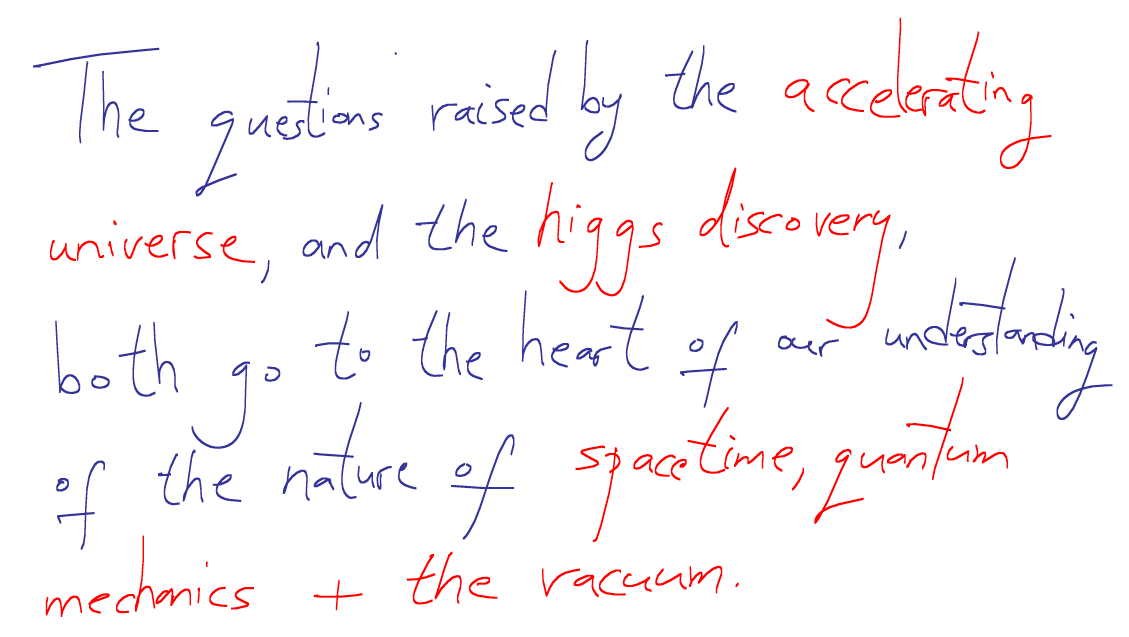 The questions raised by the accelerating
universe, and the higgs discovery,
both go to the heart of our understanding
of the nature of spacetime, quantum
mechanics + the vacuum.